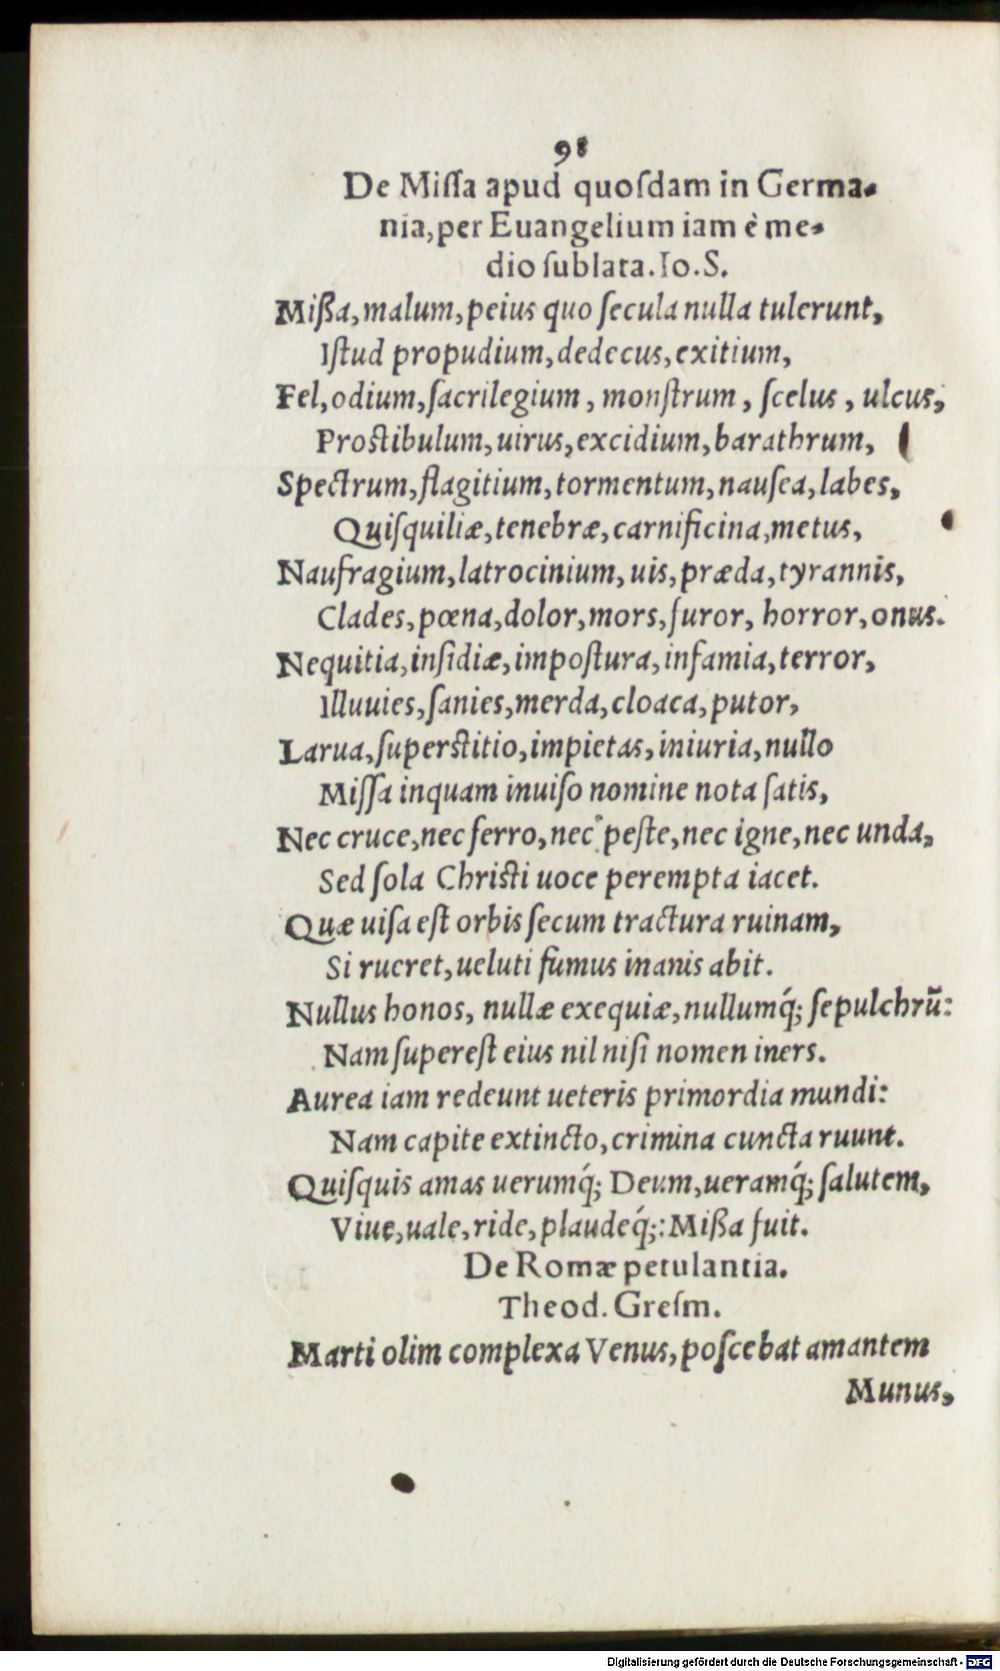 98
De Miſſa apud quoſdam in Germa-
nia, per Euangelium iam è me-
dio ſublata. Io. S.
Mißa, malum, peius quo ſecula nulla tulerunt,
Iſtud propudium, dedecus, exitium,
Fel, odium, ſacrilegium, monſtrum, ſcelus, ulcus,
Proſtibulum, uirus, excidium, barathrum,
Spectrum, flagitium, tormentum, nauſea, labes,
Quiſquiliæ, tenebræ, carnificina, metus,
Naufragium, latrocinium, uis, præda, tyrannis,
Clades, pœna, dolor, mors, furor, horror, onus.
Nequitia, inſidiæ, impoſtura, infamia, terror,
Illuuies, ſanies, merda, cloaca, putor,
Larua, ſuperſtitio, impietas, iniuria, nullo
Miſſa inquam inuiſo nomine nota ſatis,
Nec cruce, nec ferro, nec peſte, nec igne, nec unda,
Sed ſola Chriſti uoce perempta iacet.
Quæ uiſa eſt orbis ſecum tractura ruinam,
Si rueret, ueluti fumus inanis abit.
Nullus honos, nullæ exequiæ, nullumq́; ſepulchrū:
Nam ſupereſt eius nil niſi nomen iners.
Aurea iam redeunt ueteris primordia mundi:
Nam capite extincto, crimina cuncta ruunt.
Quiſquis amas uerumq́; Deum, ueramq́; ſalutem,
Viue, uale, ride, plaudeq́;: Mißa fuit.
De Romæ petulantia.
Theod. Greſm.
Marti olim complexa Venus, poſcebat amantem
Munus,
Digitalisierung gefördert durch die Deutsche Forschungsgemeinschaft - DFG